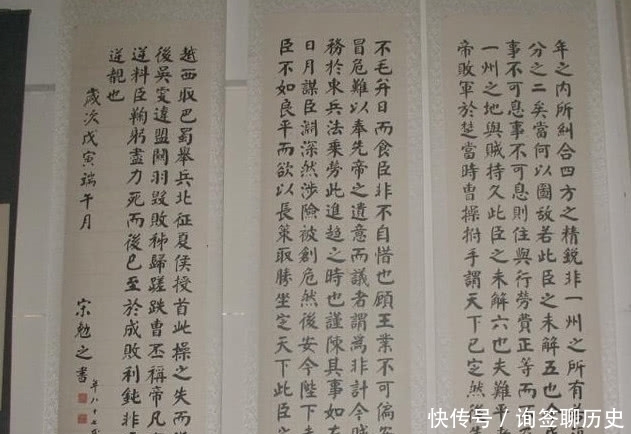 年之内所糾合四方之精銳非一州之所有
分之二矣當何以圖敵若此臣之未解五也
事不可息事不可息則住與行勞費正等而
一州之地與賊持久此臣之未解六也夫難平
帝敗軍於楚當時曹操拊手謂天下已定然
不毛并日而食臣非不自惜也顧王業不可偏
冒危難以奉先帝之遺意而議者謂為非計今賊
務於東兵法乘勞此進趨之時也謹陳其事如
日月謀臣淵深然涉險被創危然後安今陛下
臣不如良平而欲以長策取勝坐定天下此臣
越西取巴蜀舉兵北征夏侯授首此操之失而
後吳更違盟關羽毀敗秭歸蹉跌曹丕稱帝凡
逆料臣鞠躬盡力死而後已至於成敗利鈍非
逆覩也
歲次戊寅端午月
宋勉之書
年八十七
快传号 / 询签聊历史